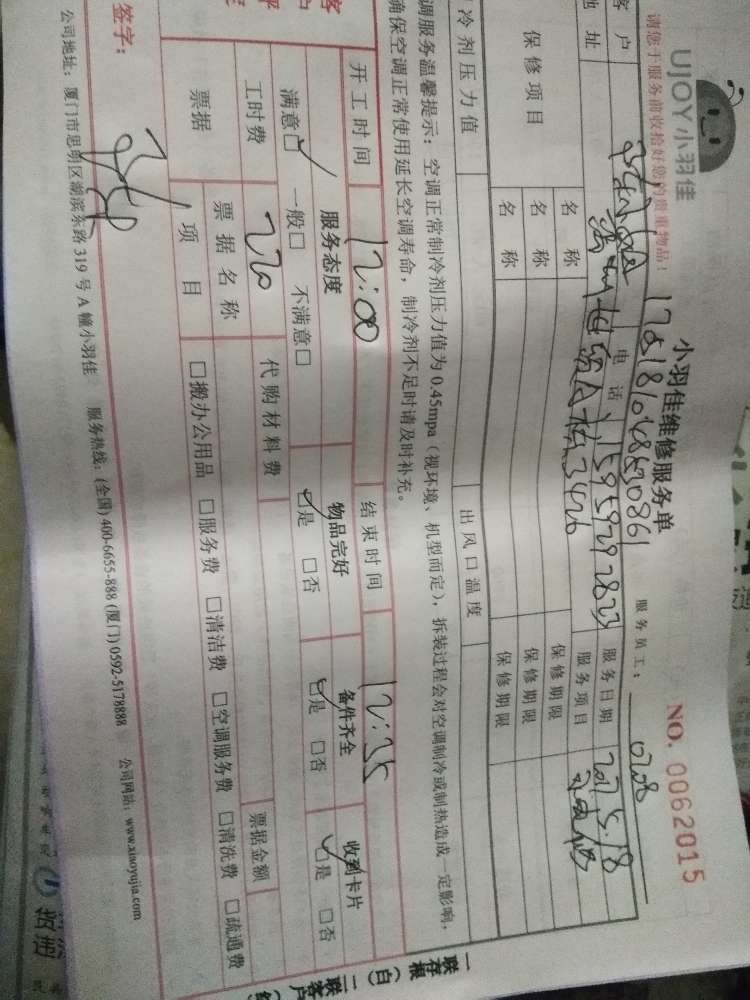 UJOY小羽佳
小羽佳维修服务单
NO. 0062015
请您于服务前收拾好您的贵重物品!
175181048630861
服务员工: 0208
客户
电话 15959292823
服务日期 2017.5.18
地址
服务项目
保修项目
名称 保修期限
名称 保修期限
名称 保修期限
冷剂压力值 出风口温度
调服务温馨提示: 空调正常制冷剂压力值为0.45mpa(视环境、机型而定),拆装过程会对空调制冷或制热造成一定影响,
确保空调正常使用延长空调寿命,制冷剂不足时请及时补充。
开工时间 12:00 结束时间 12:35
服务态度 物品完好 备件齐全 收到卡片
满意☑ 一般□ 不满意□ ☑是 □否 ☑是 □否 ☑是 □否
工时费 220 代购材料费
票据 票据名称 票据金额
项目 □搬办公用品 □服务费 □清洁费 □空调服务费 □清洗费 □疏通费
签字:
公司地址: 厦门市思明区湖滨东路319号A幢小羽佳 服务热线: (全国) 400-6655-888 (厦门) 0592-5178888 公司网站: www.xiaoyujia.com
一联存根(白) 二联客户